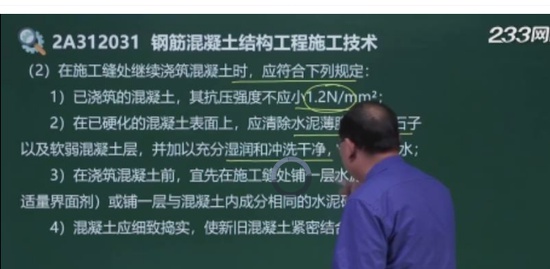 2A312031 钢筋混凝土结构工程施工技术
233网
(2)在施工缝处继续浇筑混凝土时，应符合下列规定：
1）已浇筑的混凝土，其抗压强度不应小1.2N/mm²；
2）在已硬化的混凝土表面上，应清除水泥薄 石子
以及软弱混凝土层，并加以充分湿润和冲洗干净， 水；
3）在浇筑混凝土前，宜先在施工缝处铺一层水
适量界面剂）或铺一层与混凝土内成分相同的水泥
4）混凝土应细致捣实，使新旧混凝土紧密结合